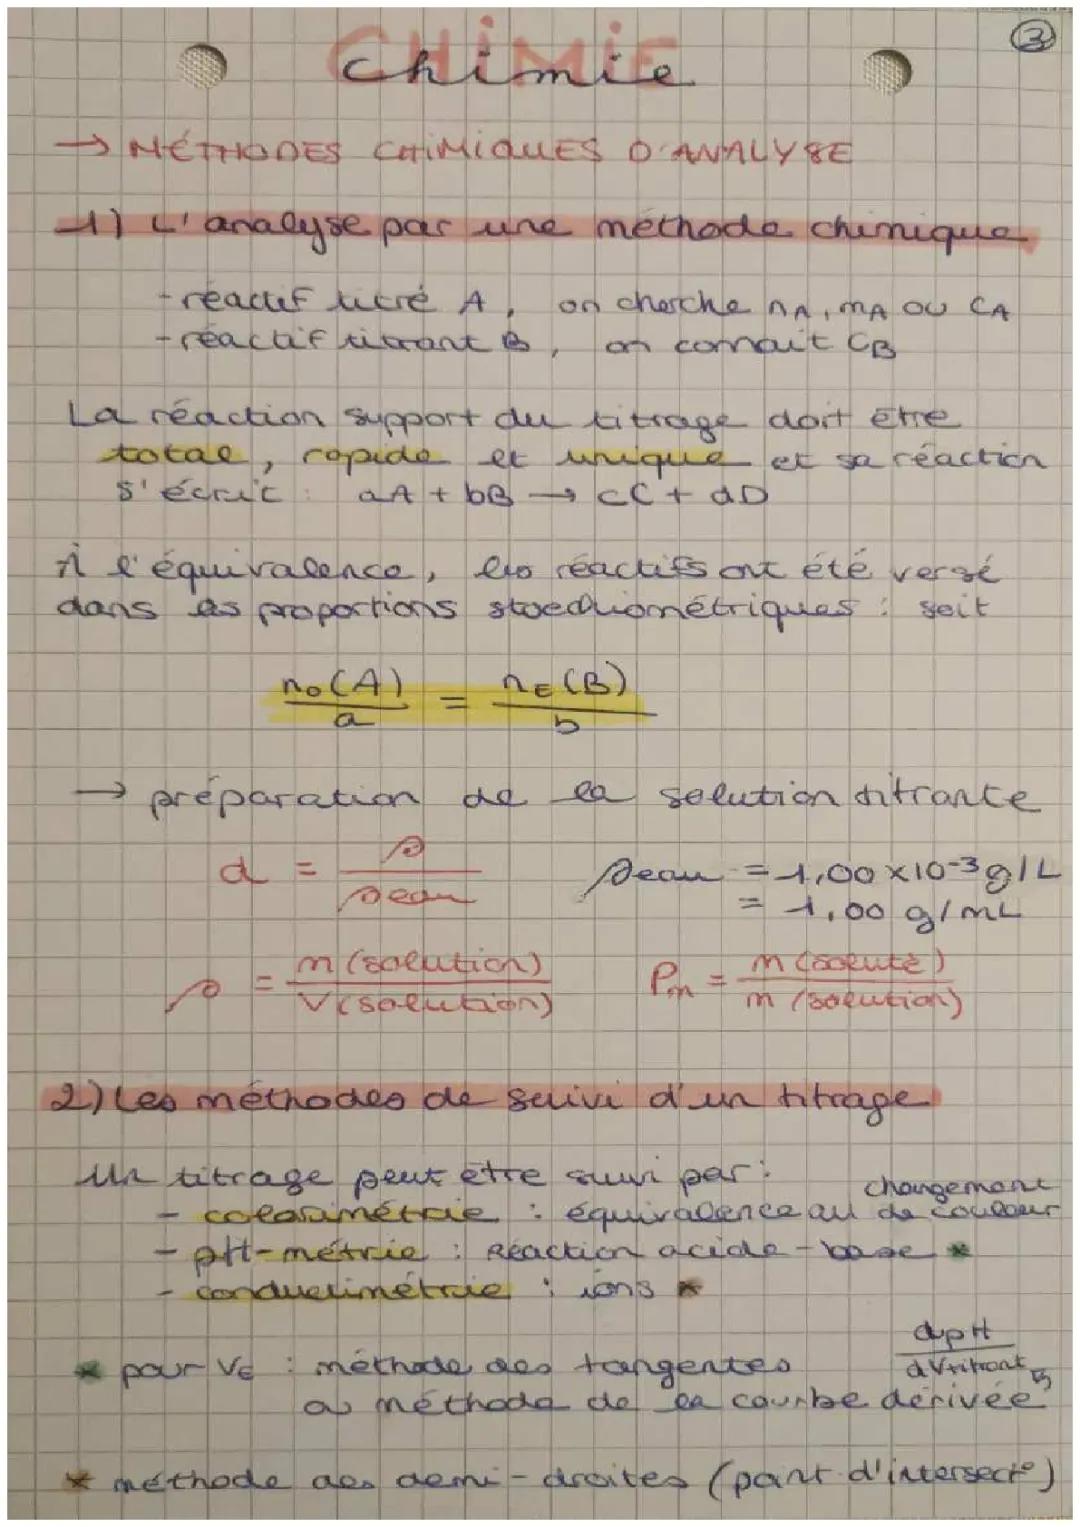 3
CHIMIE
chimie
→ MÉTHODES CHIMIQUES D'ANALYSE
1) L'analyse par une méthode chimique
- réactif titré A, on cherche nA, mA ou CA
- réactif titrant B, on connait CB
La réaction support du titrage doit être
totale, rapide et unique et sa réaction
s'écrit : aA + bB → cC + dD
À l'équivalence, les réactifs ont été versé
dans les proportions stoechiométriques : soit
n₀(A)/a = nE(B)/b
→ préparation de la solution titrante
d = ρ/ρeau ρeau = 1,00 x10⁻³ g/L
= 1,00 g/mL
ρ = m(solution)/V(solution) Pm = m(soluté)/m(solution)
2) Les méthodes de suivi d'un titrage
Un titrage peut être suivi par :
- colorimétrie : équivalence au changement de couleur
- pH-métrie : Réaction acide-base *
- conductimétrie : ions *
* pour VE : méthode des tangentes dpH/dVtitrant
ou méthode de la courbe dérivée
* méthode des demi-droites (point d'intersect°)